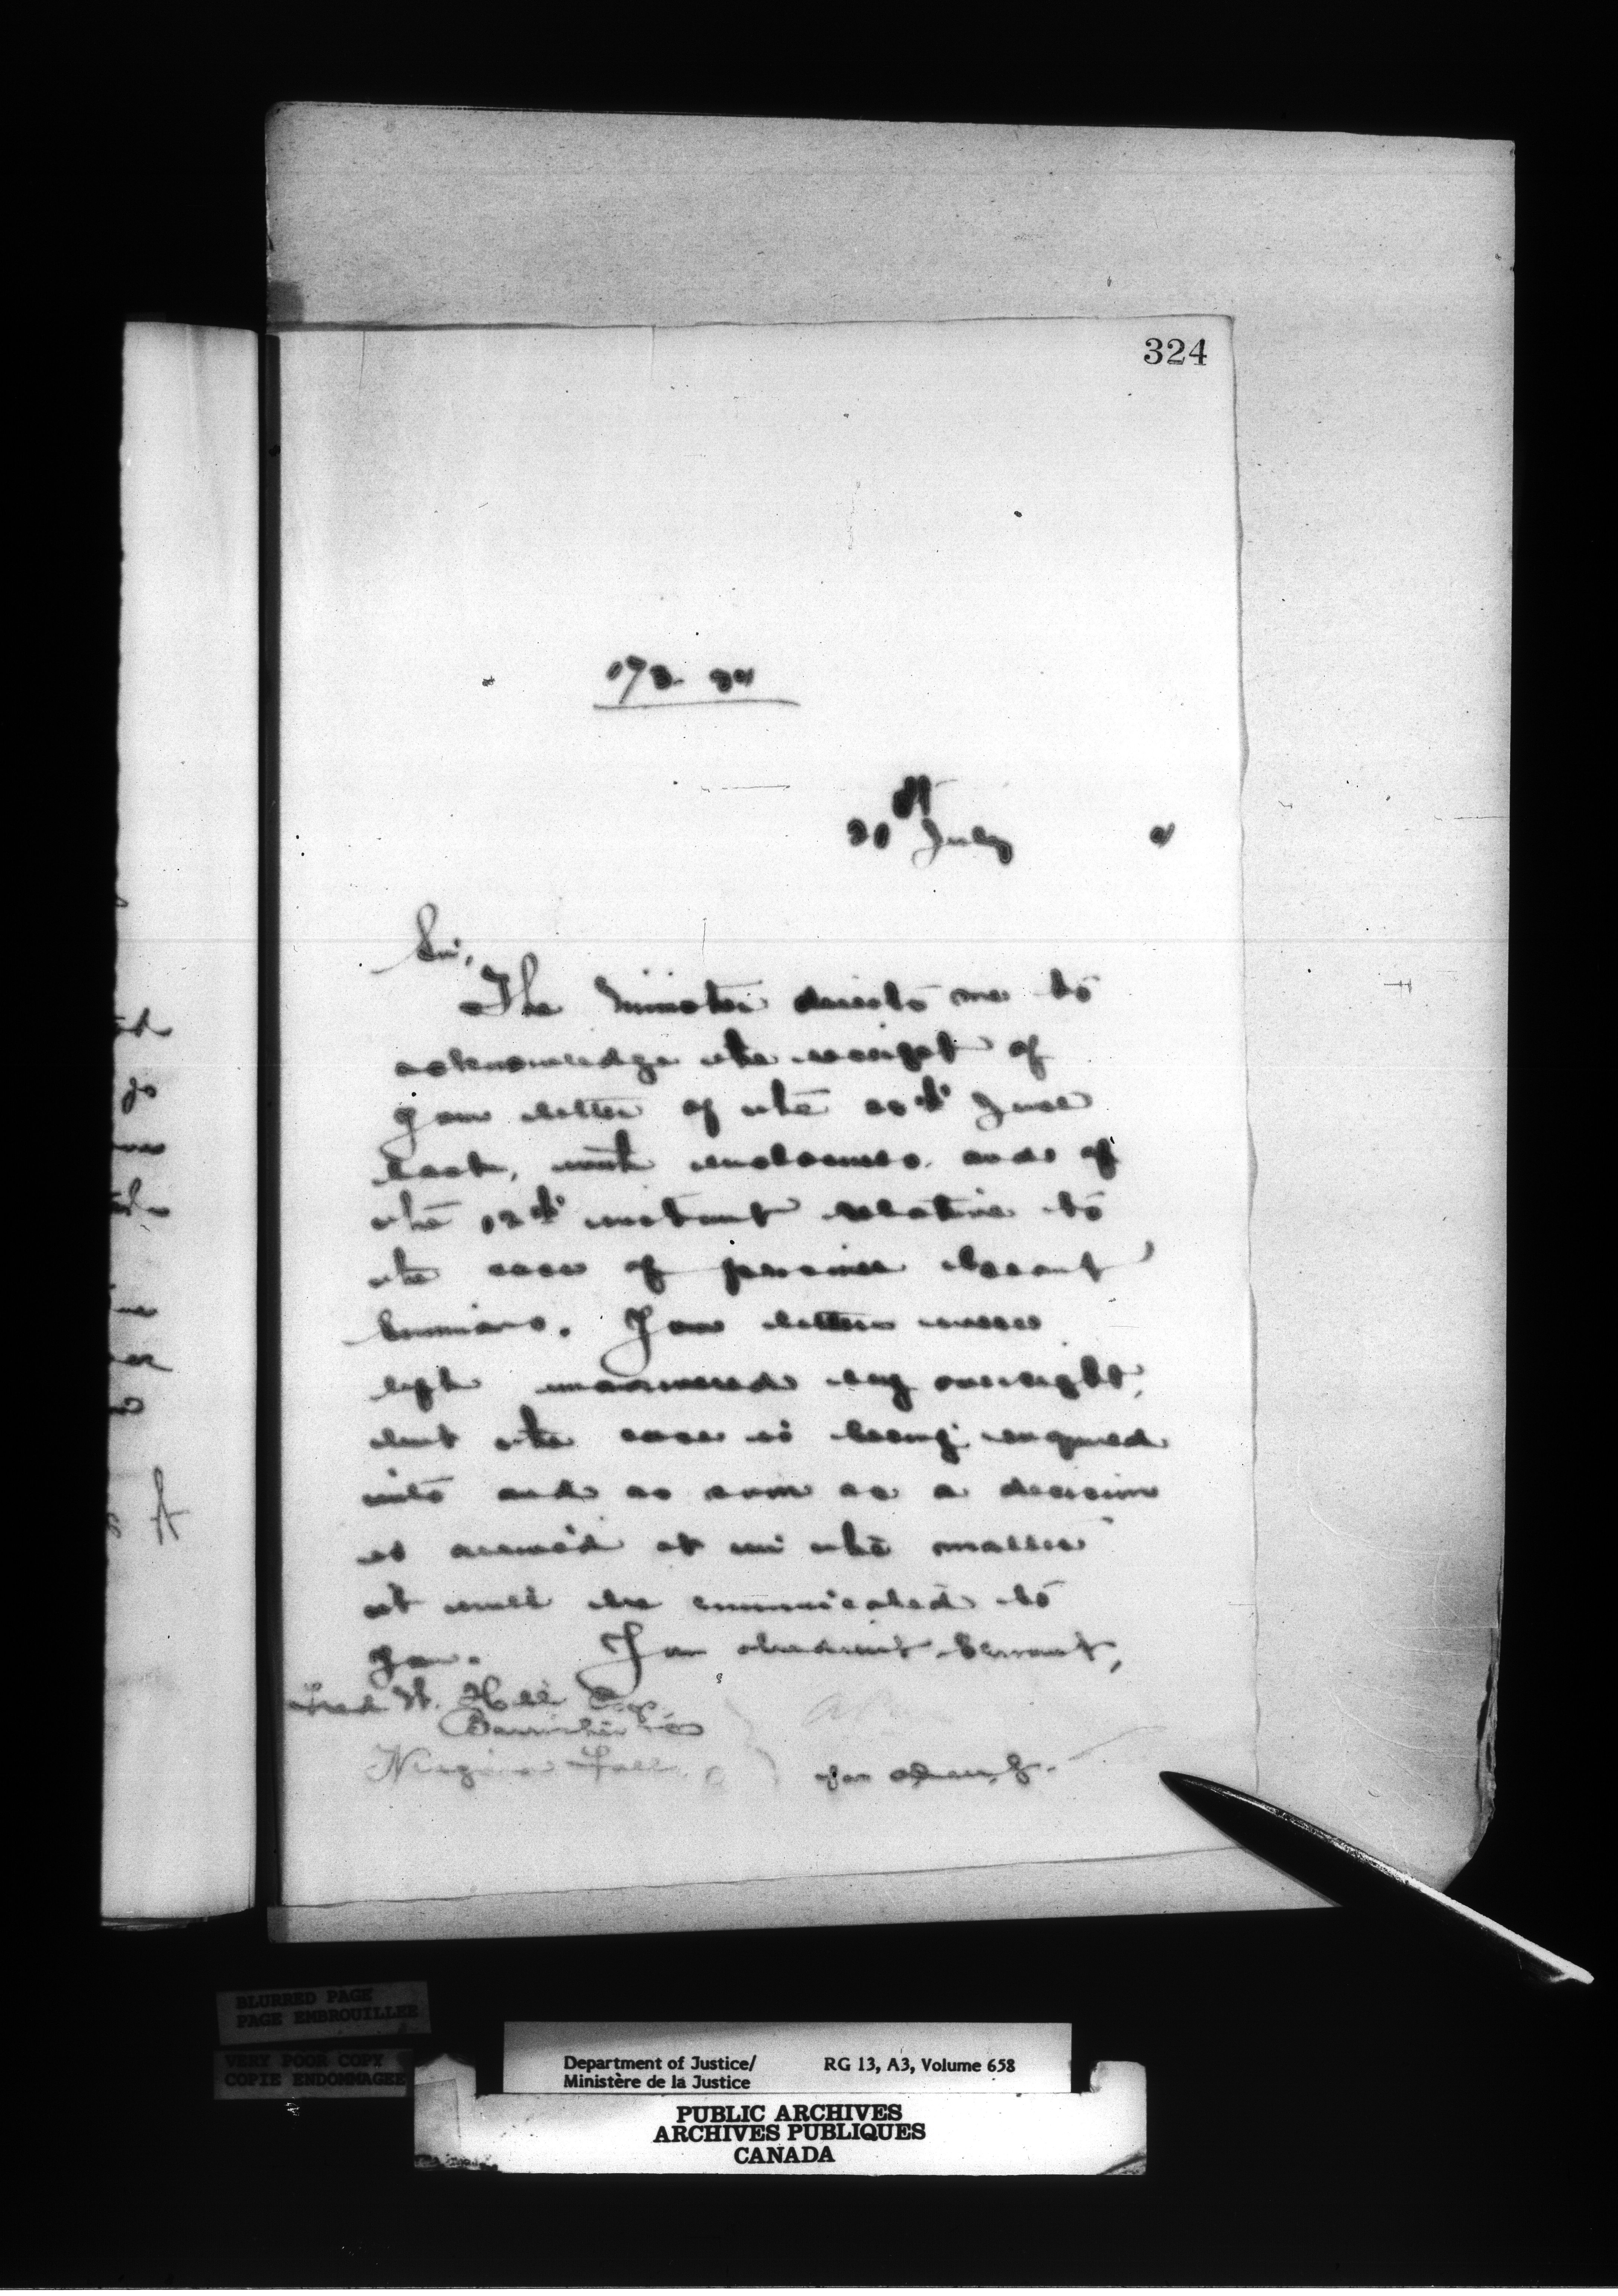 324
31st July
Sir,
The Minister directs me to
acknowledge the receipt of
your letter of the 20th June
last, with enclosures, and of
the 12th instant relative to
the case of prisoner
Your letters were
left unanswered by oversight,
but the case is being enquired
into and as soon as a decision
is arrived at in the matter
it will be communicated to
you. Your obedient Servant,
Fred W. Hill Esq.
Barrister &c
Niagara Falls, O
for
BLURRED PAGE
PAGE EMBROUILLER
VERY POOR COPY
COPIE ENDOMMAGEE
Department of Justice/ RG 13, A3, Volume 658
Ministère de la Justice
PUBLIC ARCHIVES
ARCHIVES PUBLIQUES
CANADA